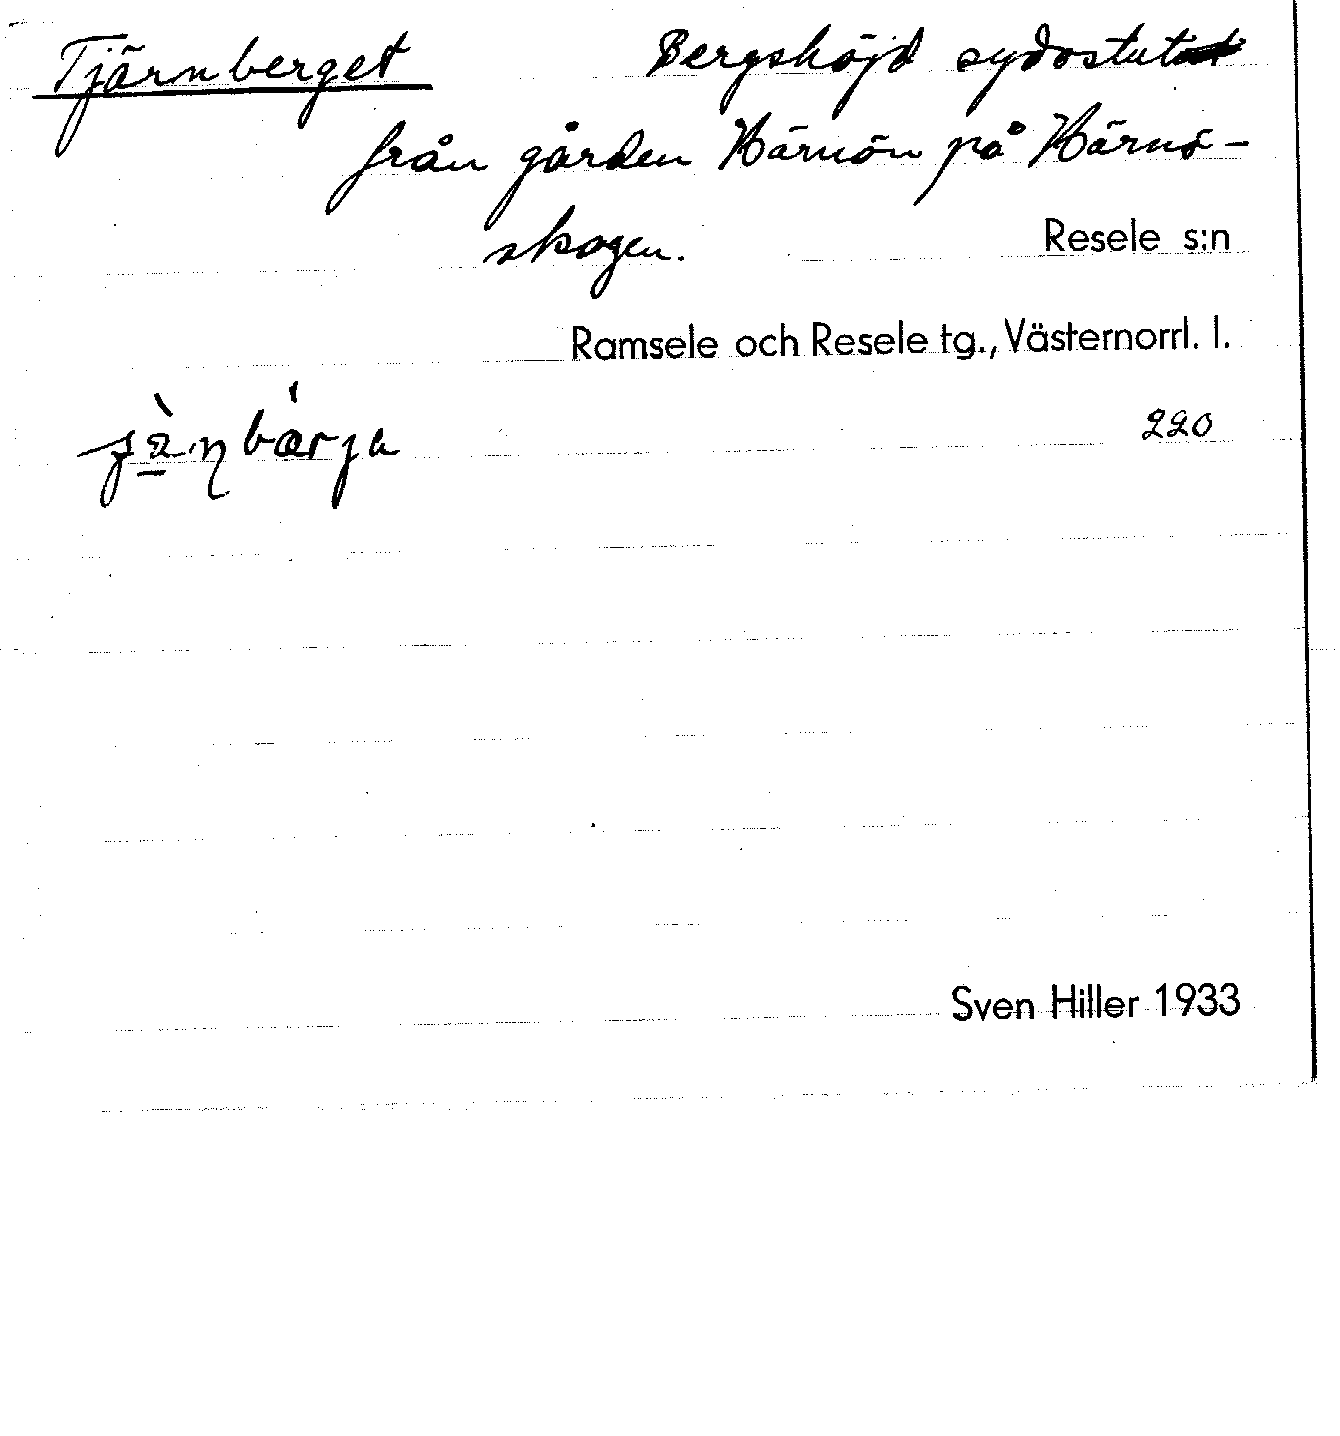 Tjärnberget Bergshöjd sydostut
från gården Härnön på Härnö-
skogen. Resele s:n
Ramsele och Resele tg., Västernorrl. l.
220
Sven Hiller 1933